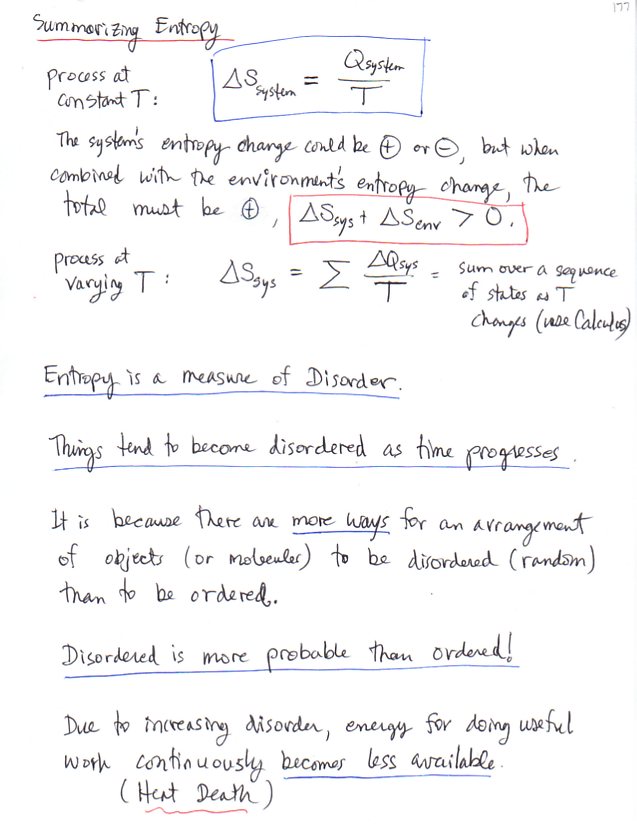 177
Summarizing Entropy
process at
constant T:
ΔS_system = Q_system / T
The system's entropy change could be ⊕ or ⊖, but when
combined with the environment's entropy change, the
total must be ⊕, ΔS_sys + ΔS_env > 0.
process at
varying T:
ΔS_sys = Σ ΔQ_sys / T = sum over a sequence
of states as T
changes (use Calculus)
Entropy is a measure of Disorder.
Things tend to become disordered as time progresses.
It is because there are more ways for an arrangement
of objects (or molecules) to be disordered (random)
than to be ordered.
Disordered is more probable than ordered!
Due to increasing disorder, energy for doing useful
work continuously becomes less available.
(Heat Death)